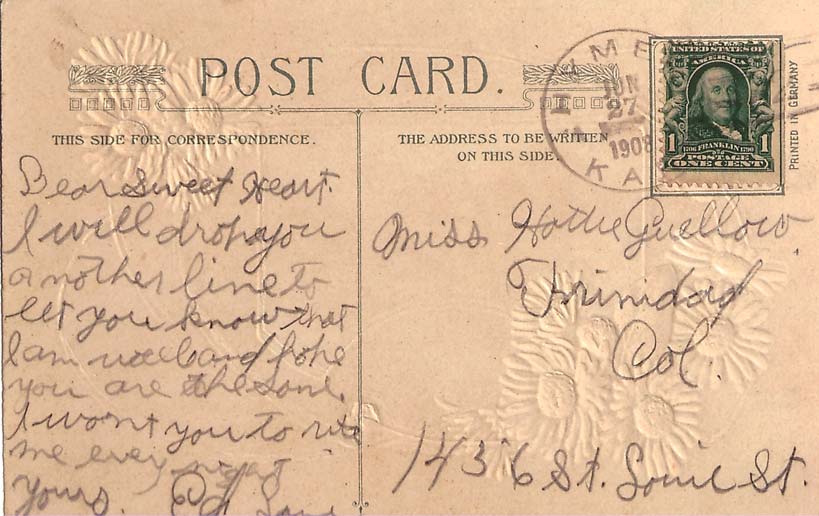 POST CARD.
THIS SIDE FOR CORRESPONDENCE.
THE ADDRESS TO BE WRITTEN
ON THIS SIDE.
PRINTED IN GERMANY
JUN
27
1908
KA
UNITED STATES OF
AMERICA
1 1706 FRANKLIN 1790 1
POSTAGE
ONE CENT
Dear Sweet Heart.
I will drop you
another line to
let you know that
I am well and hope
you are the same.
I want you to rite
me every
yours. Ed
Miss Hattie Guellow
Trinidad
Col.
1436 St. Louie St.